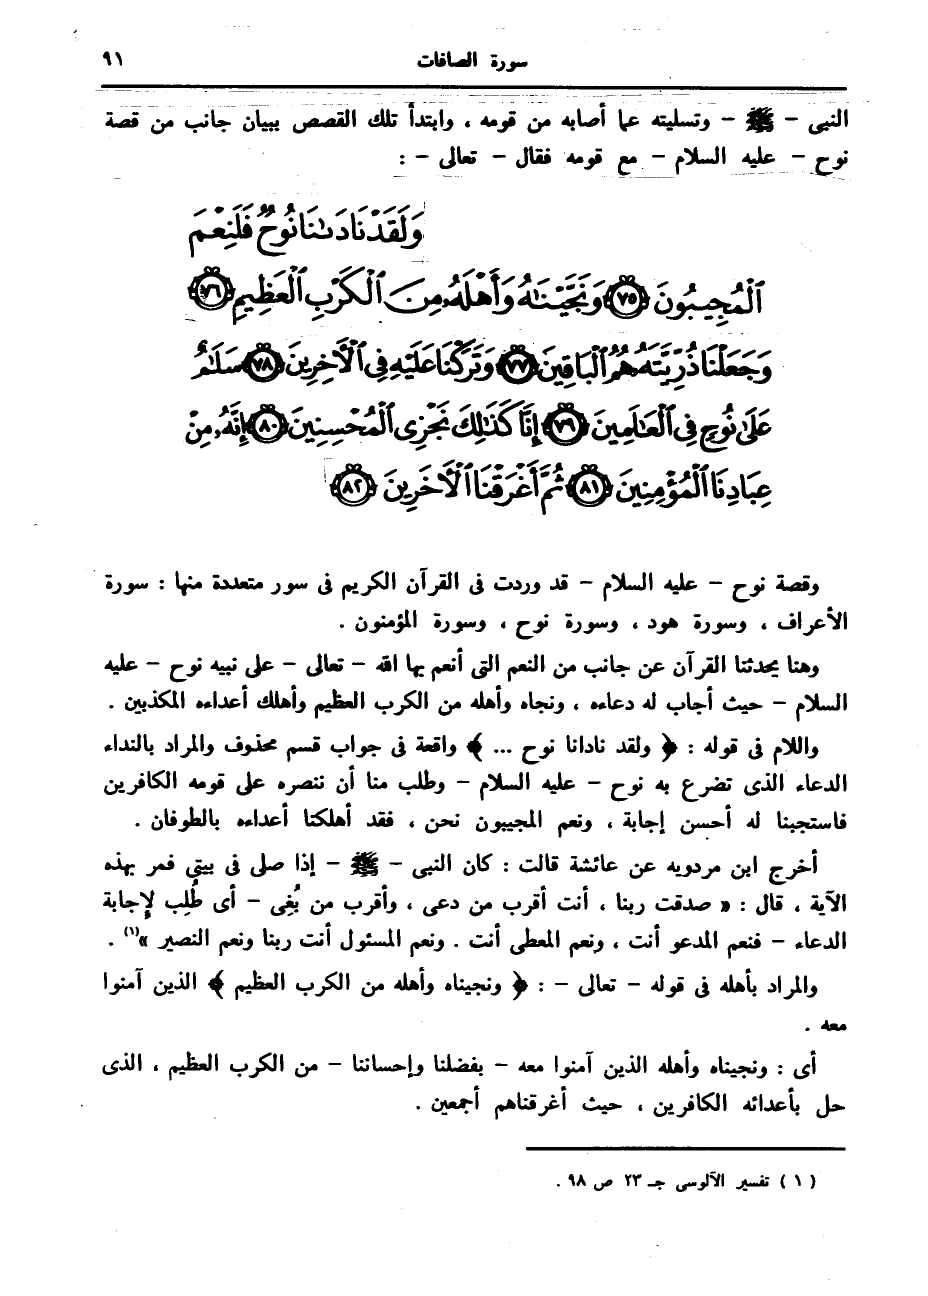 سورة الصافات ٩١
النبى - ﷺ - وتسليته عما أصابه من قومه ، وابتدأ تلك القصص ببيان جانب من قصة
نوح - عليه السلام - مع قومه فقال - تعالى - :
وَلَقَدْ نَادَىٰنَا نُوحٌ فَلَنِعْمَ
ٱلْمُجِيبُونَ ﴿٧٥﴾ وَنَجَّيْنَٰهُ وَأَهْلَهُۥ مِنَ ٱلْكَرْبِ ٱلْعَظِيمِ ﴿٧٦﴾
وَجَعَلْنَا ذُرِّيَّتَهُۥ هُمُ ٱلْبَاقِينَ ﴿٧٧﴾ وَتَرَكْنَا عَلَيْهِ فِى ٱلْأَخِرِينَ ﴿٧٨﴾ سَلَٰمٌ
عَلَىٰ نُوحٍ فِى ٱلْعَٰلَمِينَ ﴿٧٩﴾ إِنَّا كَذَٰلِكَ نَجْزِى ٱلْمُحْسِنِينَ ﴿٨٠﴾ إِنَّهُۥ مِنْ
عِبَادِنَا ٱلْمُؤْمِنِينَ ﴿٨١﴾ ثُمَّ أَغْرَقْنَا ٱلْأَخَرِينَ ﴿٨٢﴾
وقصة نوح - عليه السلام - قد وردت فى القرآن الكريم فى سور متعددة منها : سورة
الأعراف ، وسورة هود ، وسورة نوح ، وسورة المؤمنون .
وهنا يحدثنا القرآن عن جانب من النعم التى أنعم بها الله - تعالى - على نبيه نوح - عليه
السلام - حيث أجاب له دعاءه ، ونجاه وأهله من الكرب العظيم وأهلك أعداءه المكذبين .
واللام فى قوله : ﴿ ولقد نادانا نوح ... ﴾ واقعة فى جواب قسم محذوف والمراد بالنداء
الدعاء الذى تضرع به نوح - عليه السلام - وطلب منا أن ننصره على قومه الكافرين
فاستجبنا له أحسن إجابة ، ونعم المجيبون نحن ، فقد أهلكنا أعداءه بالطوفان .
أخرج ابن مردويه عن عائشة قالت : كان النبى - ﷺ - إذا صلى فى بيتى فمر بهذه
الآية ، قال : « صدقت ربنا ، أنت أقرب من دعى ، وأقرب من بُغِى - أى طُلِب لإجابة
الدعاء - فنعم المدعو أنت ، ونعم المعطى أنت . ونعم المسئول أنت ربنا ونعم النصير »(١) .
والمراد بأهله فى قوله - تعالى - : ﴿ ونجيناه وأهله من الكرب العظيم ﴾ الذين آمنوا
معه .
أى : ونجيناه وأهله الذين آمنوا معه - بفضلنا وإحساننا - من الكرب العظيم ، الذى
حل بأعدائه الكافرين ، حيث أغرقناهم أجمعين .
( ١ ) تفسير الآلوسى جـ ٢٣ ص ٩٨ .